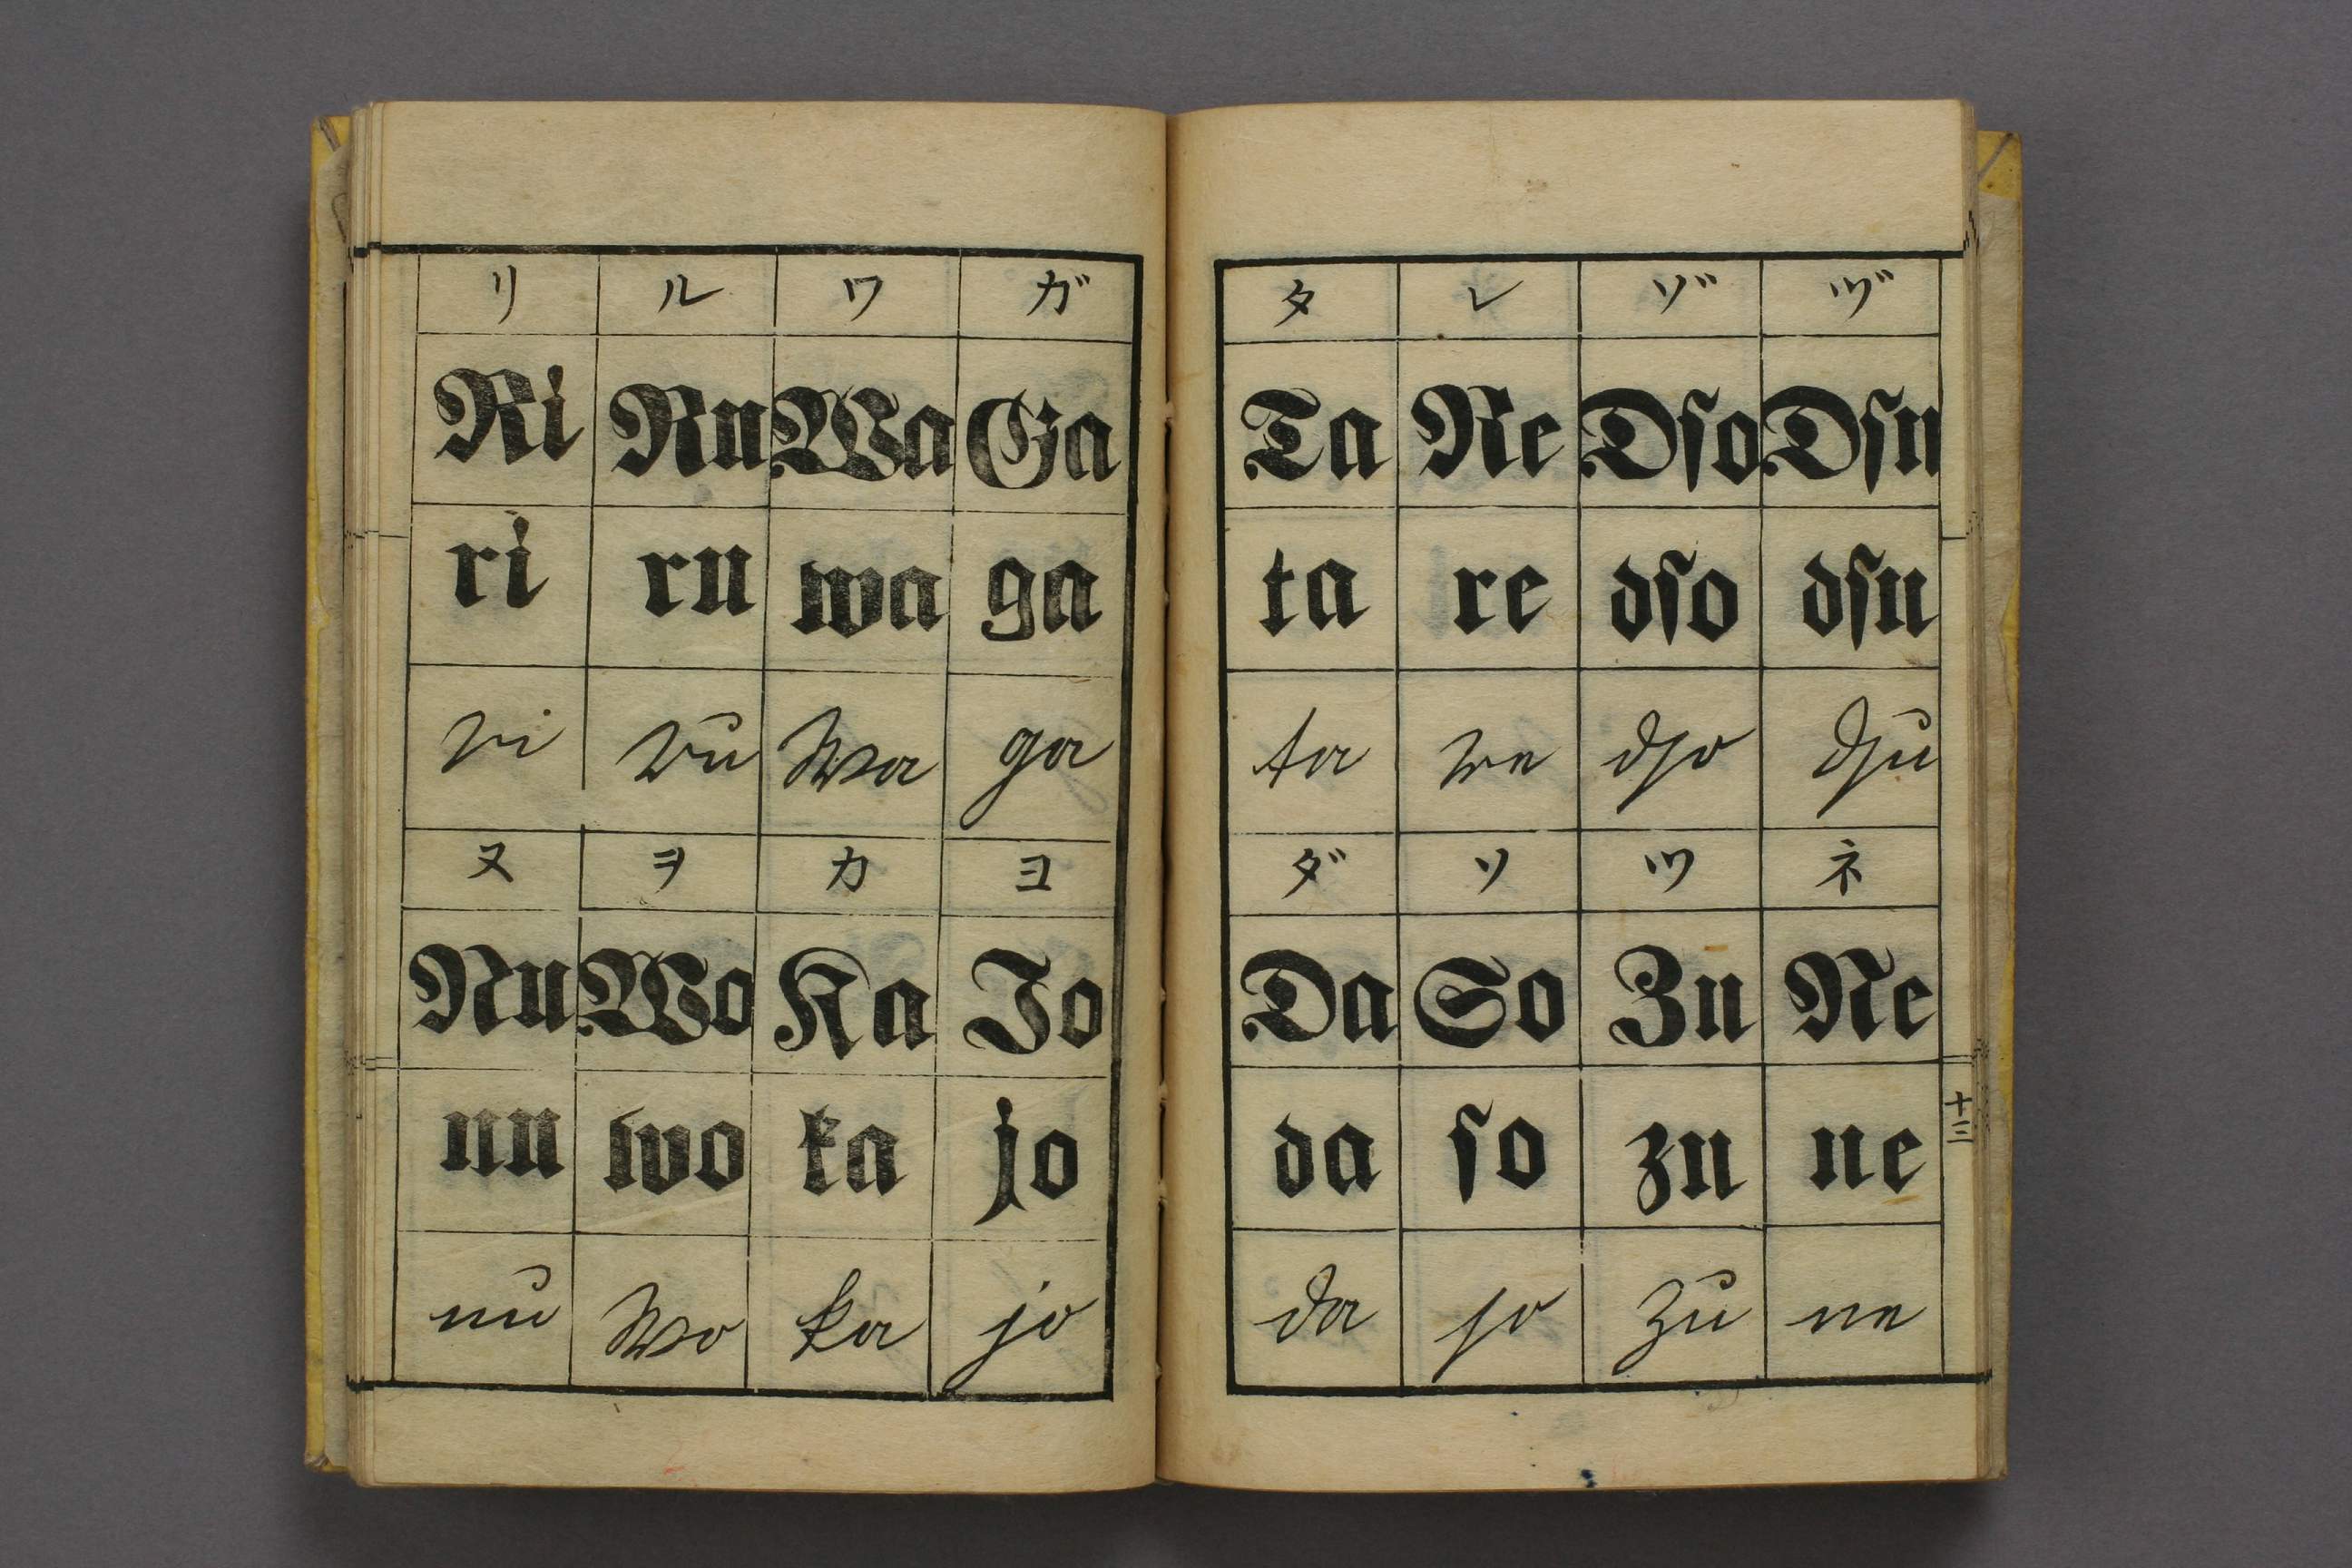 リ ル ワ ガ
Ri Ru Wa Ga
ri ru wa ga
ri ru wa ga
ヌ ヲ カ ヨ
Nu Wo Ka Jo
nu wo ka jo
nu wo ka jo
タ レ ゾ ヅ
Ta Re Dſo Dſu
ta re dſo dſu
ta re dſo dſu
ダ ソ ツ ネ
Da So Zu Ne
da ſo zu ne
da ſo zu ne
十三